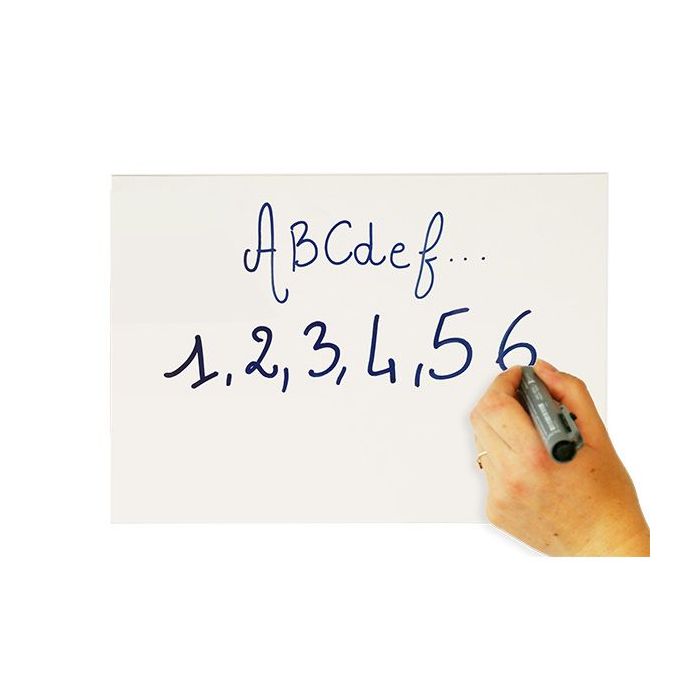 ABCdef...
1, 2, 3, 4, 5 6